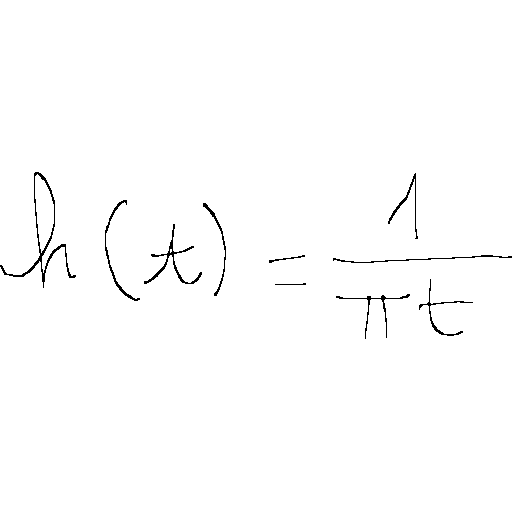 h(t) = \frac{1}{\pi t}